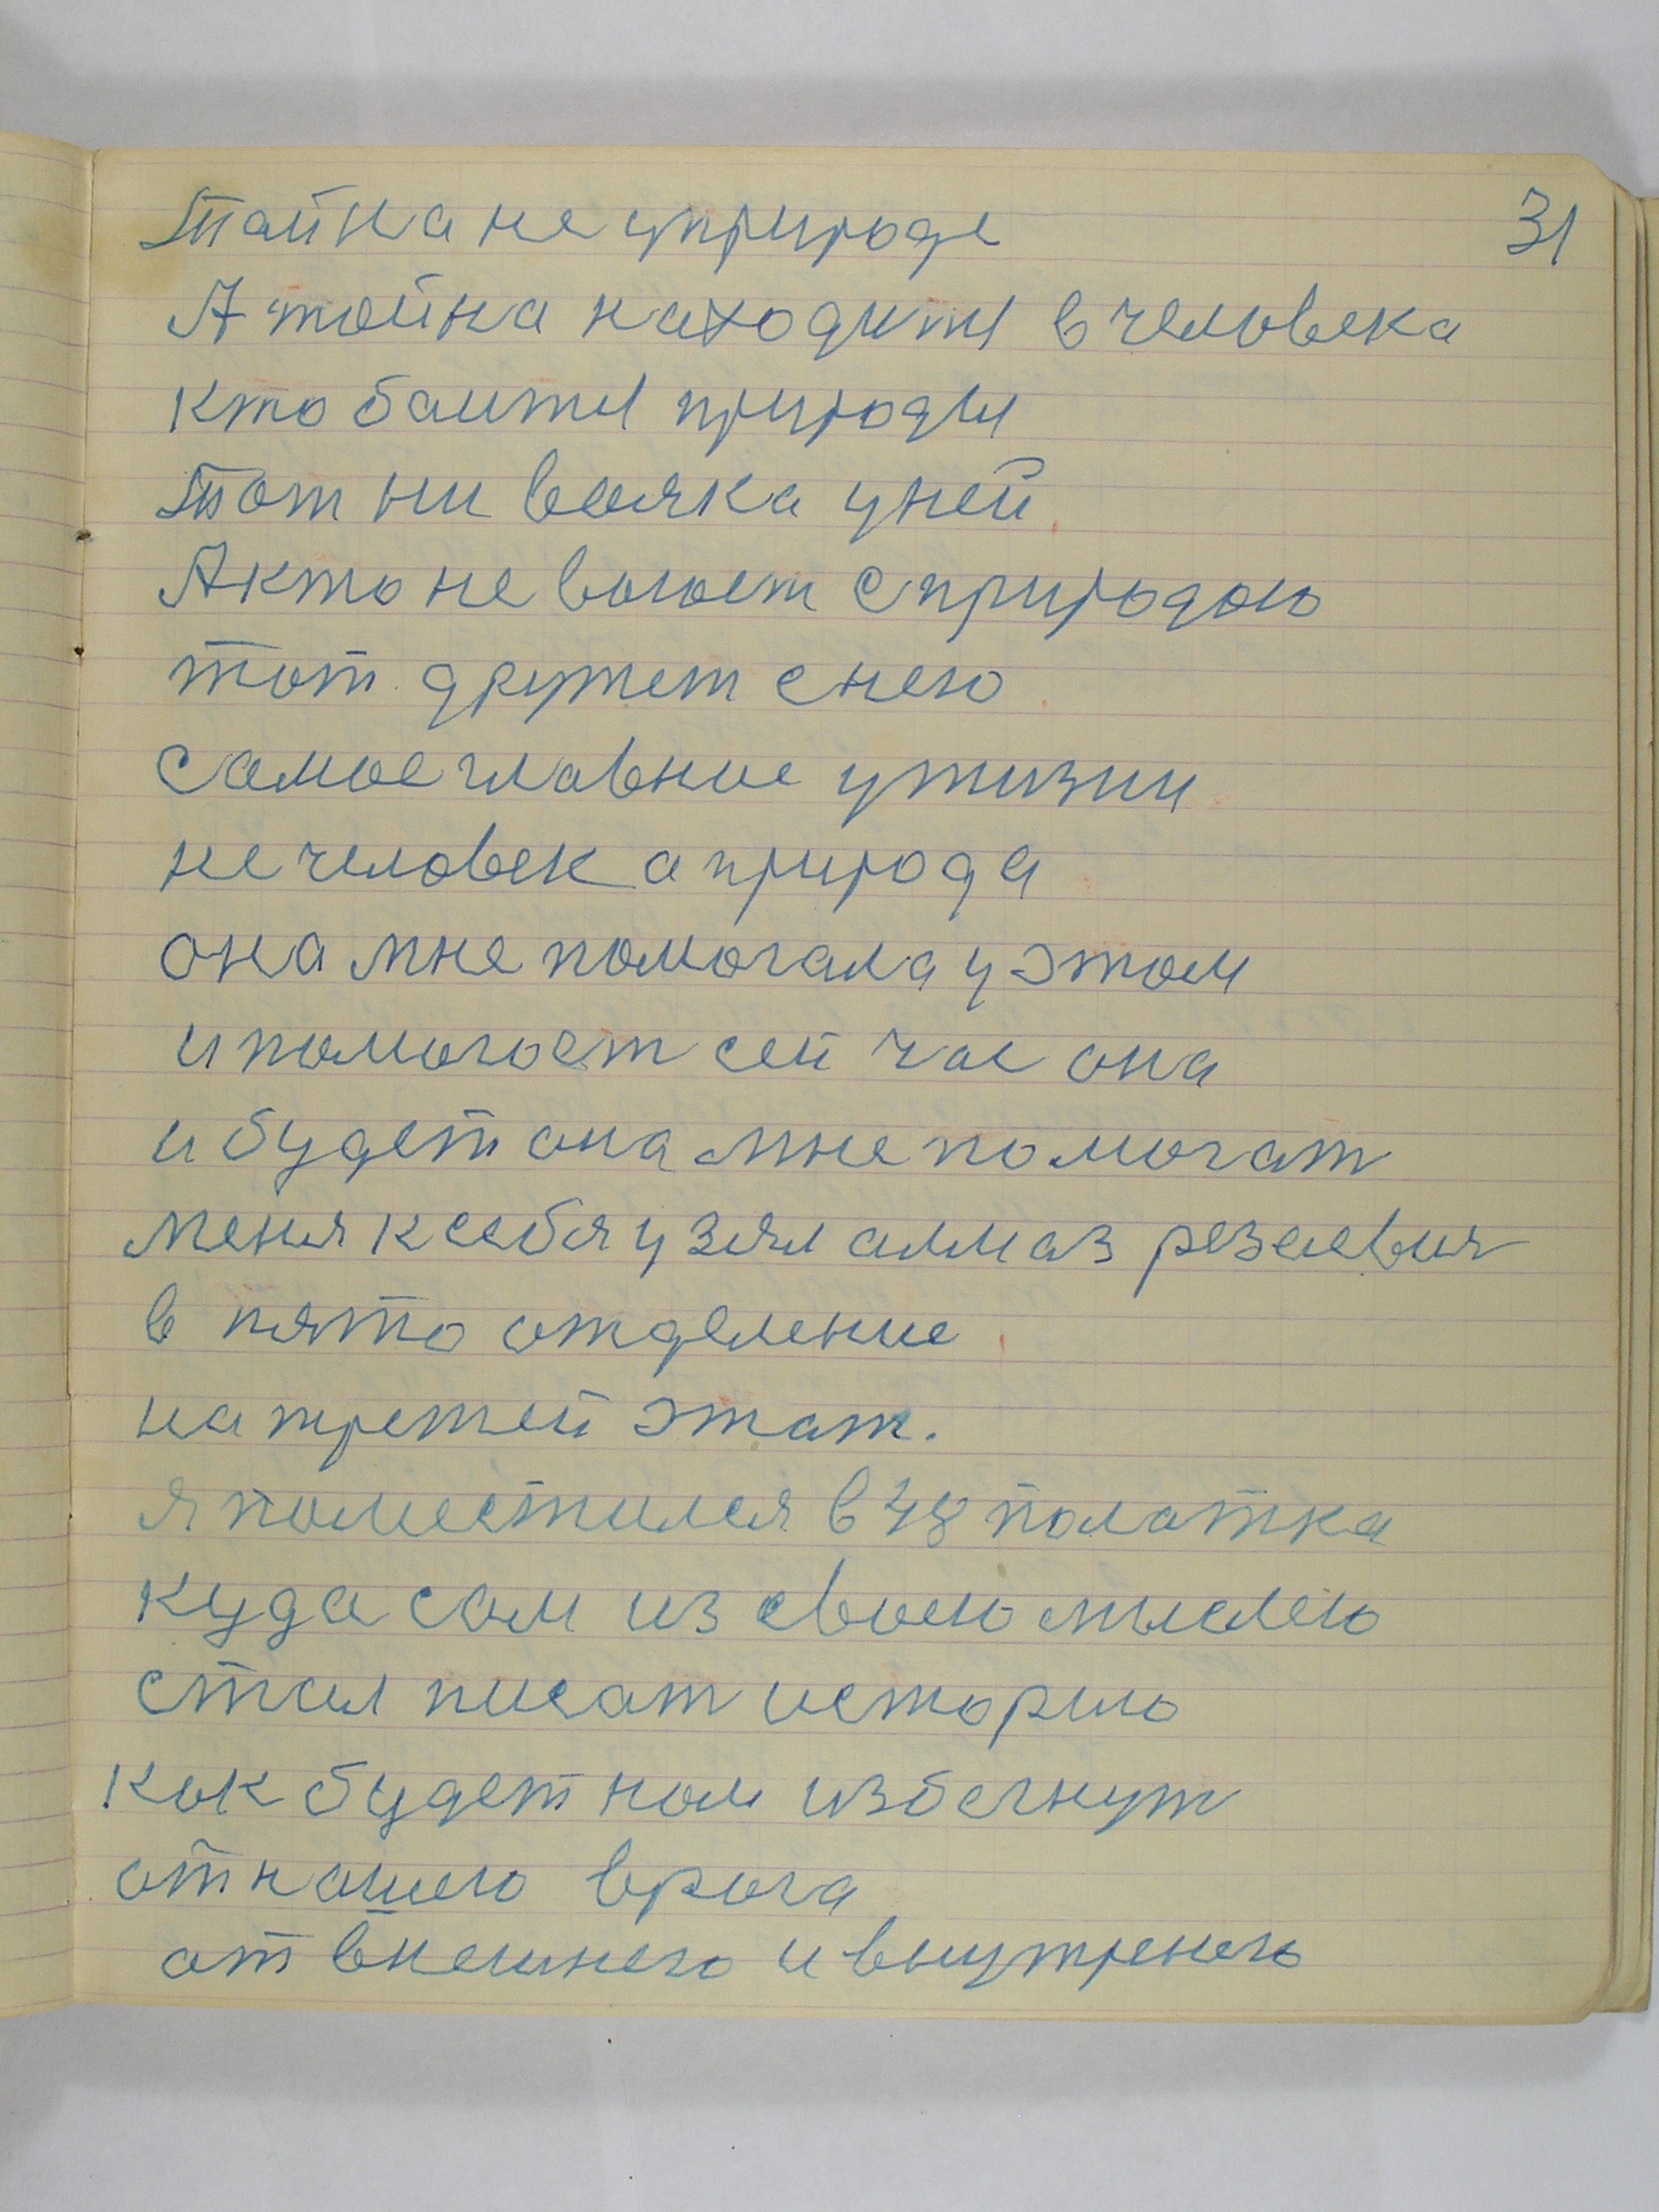 31
Тайна не уприроде
А тайна находитя в человека
кто баитя природы
Тот ни вояка уней
А кто не воюет сприродаю
тот дружет снею
самое главное ужизни
не человек а природа
она мне помогала у этом
и помогает сей час она
и будет она мне помогат
меня ксебя узял алмаз резаевич
в пято отделение
на третей этаж.
я поместился в 48 палатка
куда сам из своею мыслею
стал писат историю
как будет нам избегнут
от нашего врага
от внешнего и внутренего